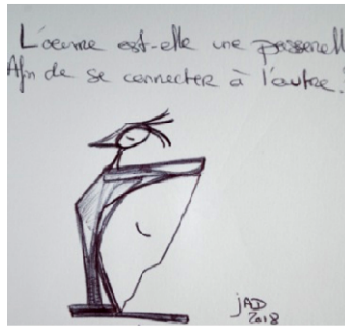 L'œuvre est-elle une passerell
Afin de se connecter à l'autre.
jAD
2018